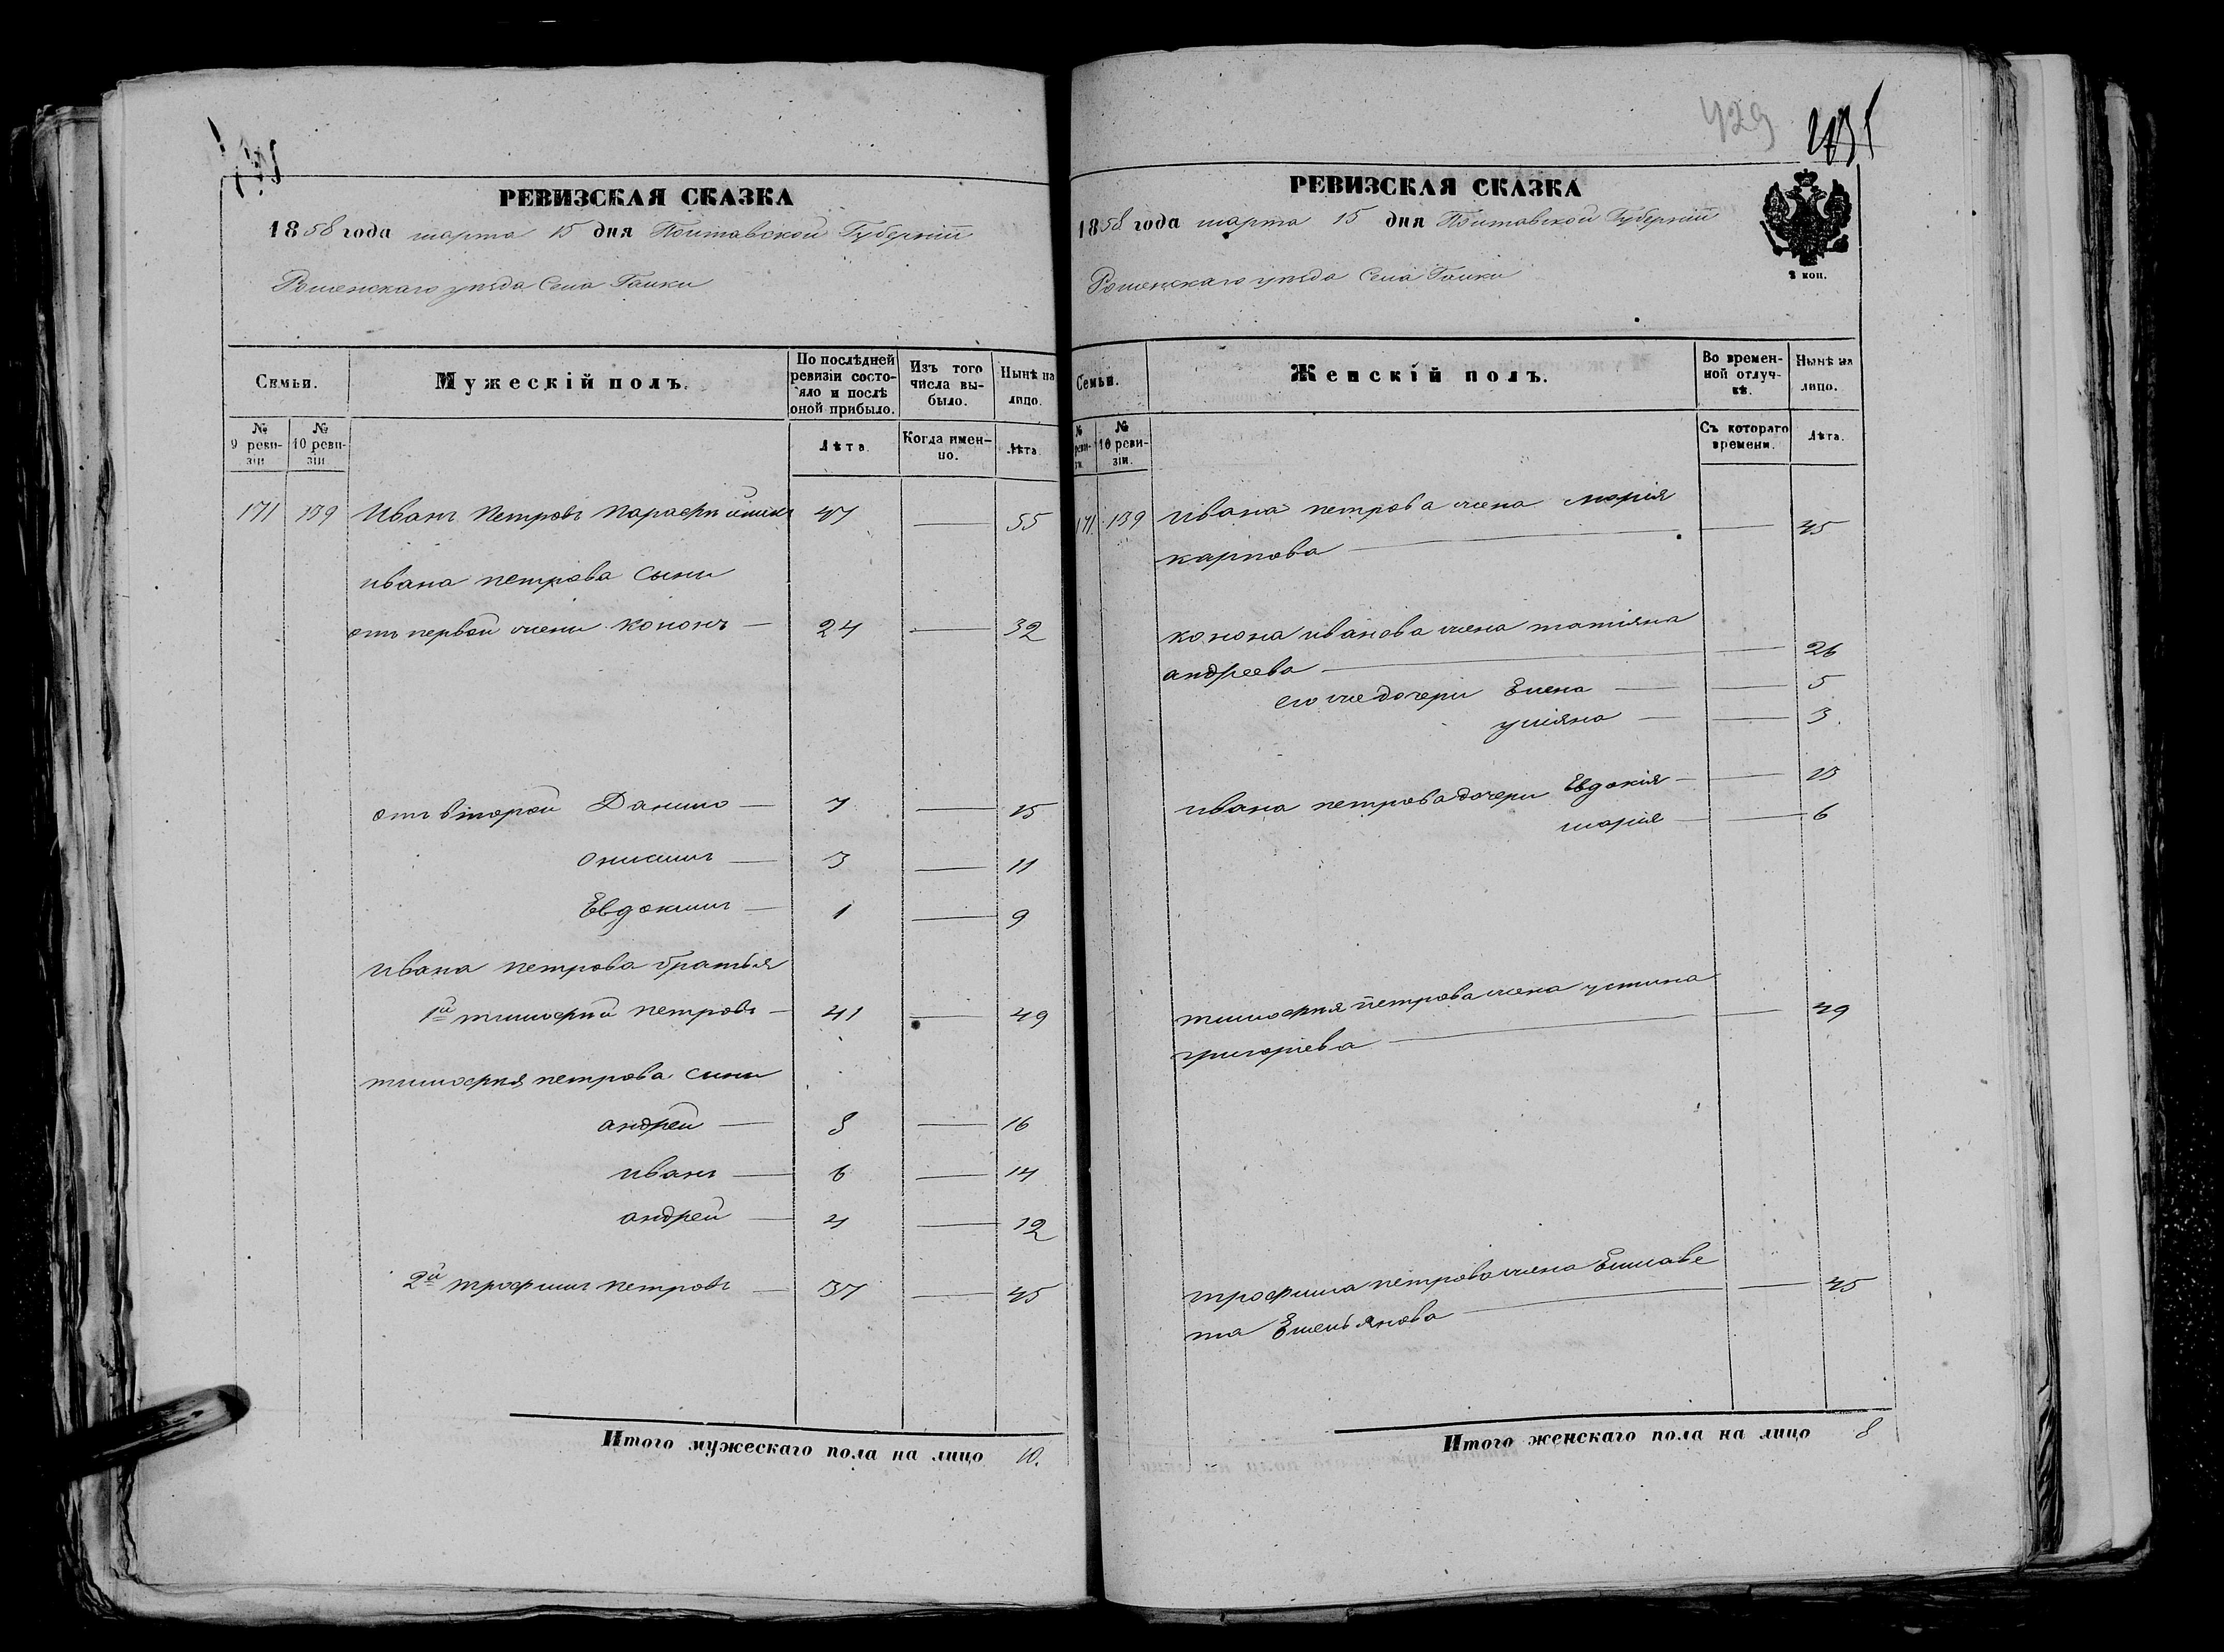 РЕВИЗСКАЯ СКАЗКА
1858 года марта 15 дня Полтавской Губерніи
Роменскаго уѣзда Села Галки
Семьи.
Мужескій полъ.
По послѣдней ревизіи состояло и послѣ оной прибыло.
Изъ того числа выбыло.
Нынѣ на лицо.
№ 9 ревизіи
№ 10 ревизіи
Лѣта.
Когда именно.
Лѣта
171 139 Иванъ Петровъ 47 — 55
ивана петрова сыны
отъ первой жены Кононъ — 24 — 32
отъ второй Данило — 7 — 15
Онисимъ — 3 — 11
Евдокимъ — 1 — 9
ивана петрова братья
1й тимофей петровъ — 41 — 49
тимофея петрова сыны
андрей — 8 — 16
иванъ — 6 — 14
андрей — 4 — 12
2й трофимъ петровъ — 37 — 45
Итого мужескаго пола на лицо 10.
429
РЕВИЗСКАЯ СКАЗКА
1858 года марта 15 дня Полтавской Губерніи
Роменскаго уѣзда Села Галки
2 коп.
Семьи.
Женскій полъ.
Во временной отлучкѣ.
Нынѣ на лицо.
№ ревизи.
№ 10 ревизіи.
Съ котораго времени.
Лѣта.
171 139 ивана петрова жена марія
карпова — — 45
конона иванова жена татіяна
андреева — — 26
его же дочери Елена — — 5
уліяна — — 3.
ивана петрова дочери Евдокія — — 13
марія — — 6
тимофея петрова жена устина
григоріева — — 49
трофима петрова жена Елисаве
та Емельянова — — 45
Итого женскаго пола на лицо 8